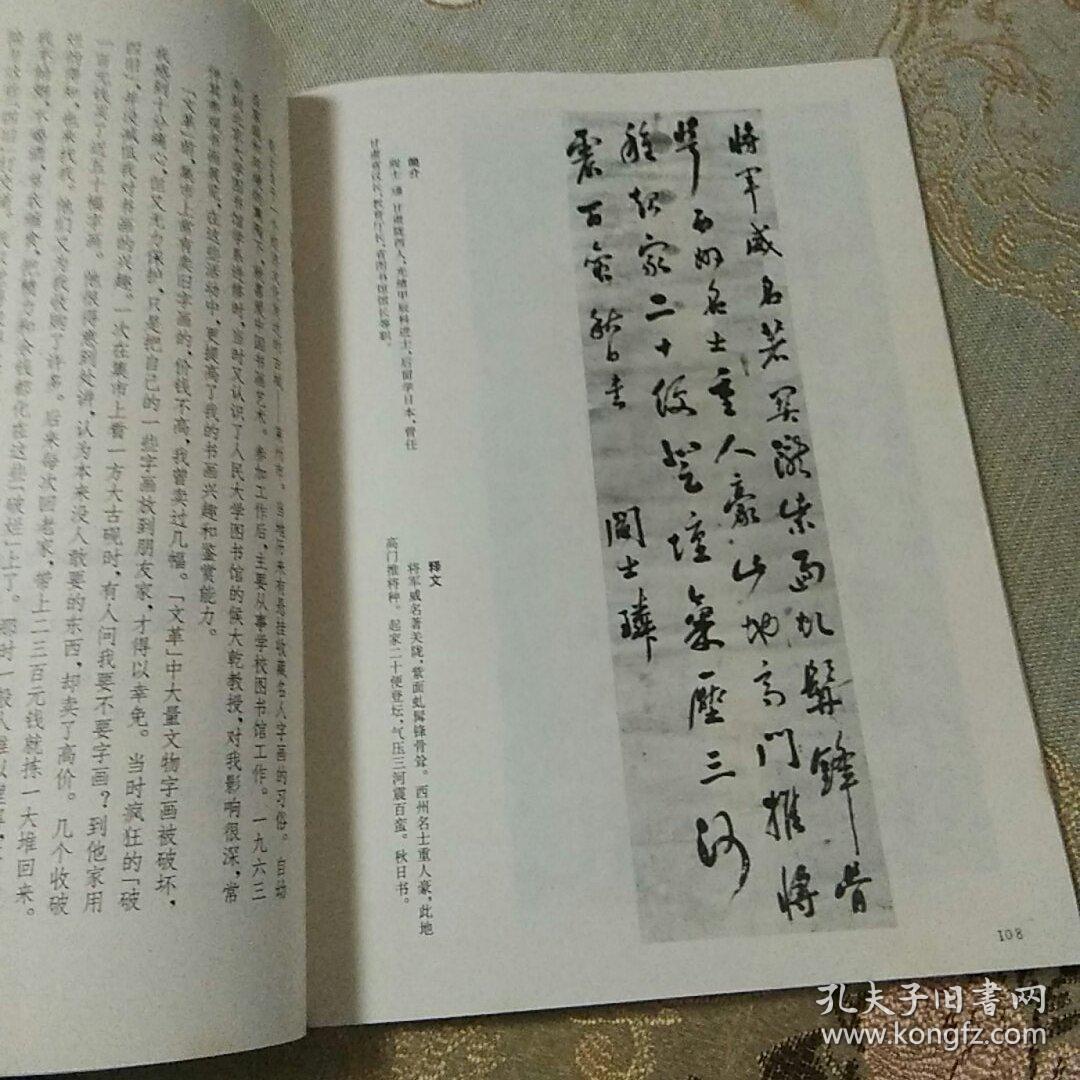 将军威名著关陇紫面虬髯锋骨
耸西州名士重人豪此地高门推将
种起家二十便登坛气压三河
震百蛮秋日书 阎士璘
释文
将军威名著关陇，紫面虬髯锋骨耸。西州名士重人豪，此地
高门推将种。起家二十便登坛，气压三河震百蛮。秋日书。
简介
阎士璘 甘肃陇西人，光绪甲辰科进士，后留学日本，曾任
甘肃省议长，教育厅长，省图书馆馆长等职。
108
当地历来有悬挂收藏名人字画的习俗。自幼
爱中国书画艺术。参加工作后，主要从事学校图书馆工作。一九六三
年到北京大学图书馆学系进修时，当时又认识了人民大学图书馆的侯大乾教授，对我影响很深，常
在这些活动中，更提高了我的书画兴趣和鉴赏能力。
「文革」前，集市上常有卖旧字画的，价钱不高，我曾卖过几幅。「文革」中大量文物字画被破坏，
我感到十分痛心，但又无力保护，只是把自己的一些字画放到朋友家，才得以幸免。当时疯狂的「破
四旧」，并没减低我对书画的兴趣。一次在集市上看一方大古砚时，有人问我要不要字画？到他家用
一百元钱买了近五十幅字画。他很得意到处讲，认为本来没人敢要的东西，却卖了高价。几个收破
烂的得知，也来找我。他们又为我收购了许多。后来每次回老家，带上二三百元钱就拣一大堆回来。
把精力和余钱都化在这些「破烂」上了。那时一般人难以理
孔夫子旧书网
www.kongfz.com